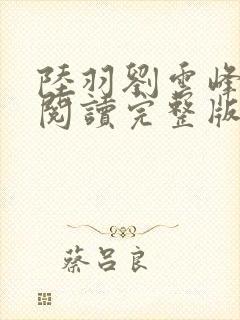 陸羽劉雲峰
閱讀完整版
蔡呂良